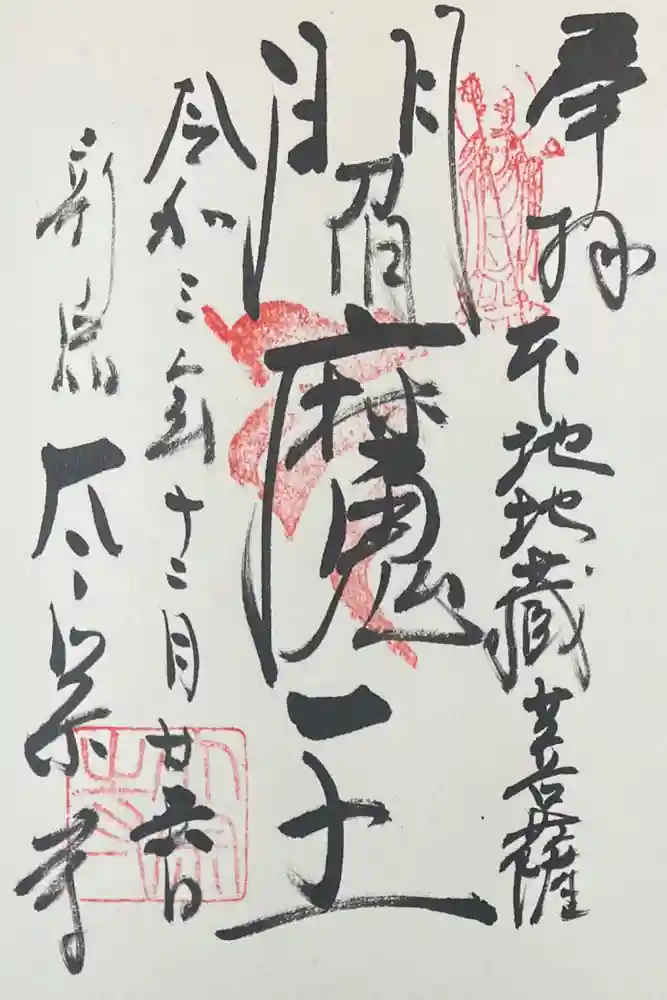 奉拝
本地地蔵菩薩
閻魔王
令和三年十二月廿六日
新宿太宗寺